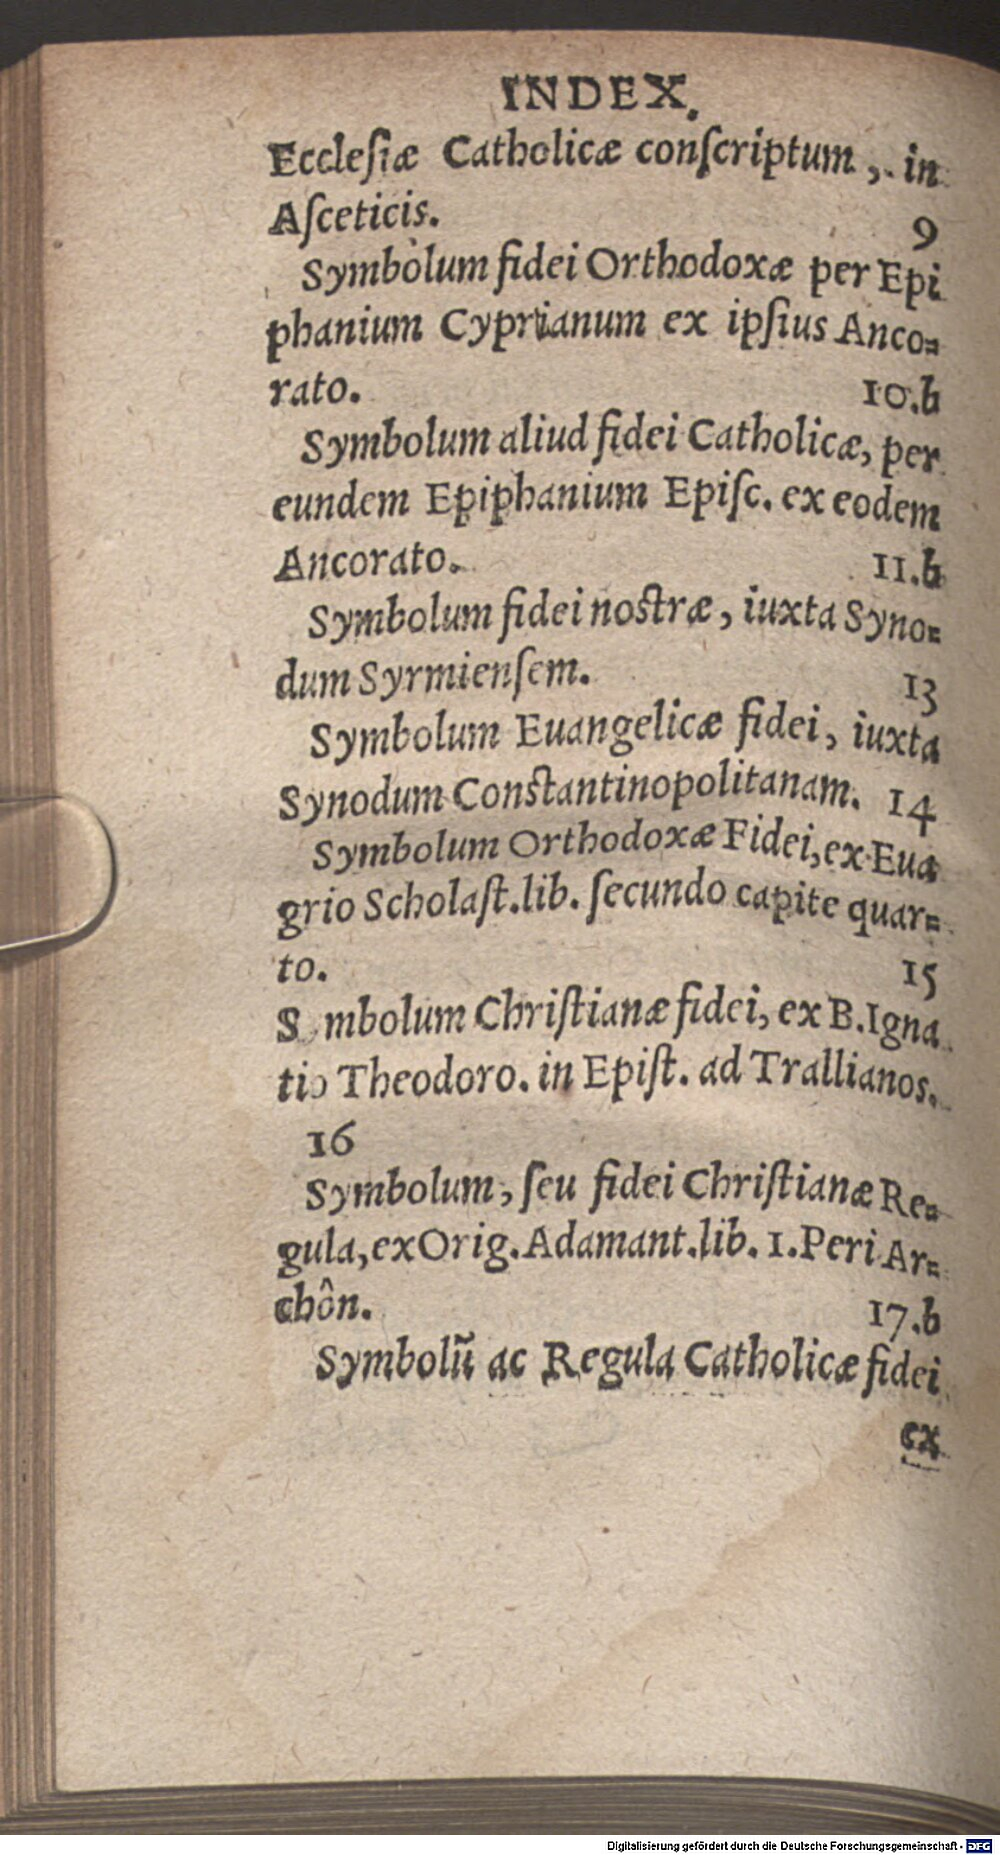 INDEX.
Eccleſiæ Catholicæ conſcriptum, in
Aſceticis. 9
Symbolum fidei Orthodoxæ per Epi
phanium Cyprianum ex ipſius Anco=
rato. 10.b
Symbolum aliud fidei Catholicæ, per
eundem Epiphanium Epiſc. ex eodem
Ancorato. 11.b
Symbolum fidei noſtræ, iuxta Syno=
dum Syrmienſem. 13
Symbolum Euangelicæ fidei, iuxta
Synodum Conſtantinopolitanam. 14
Symbolum Orthodoxæ Fidei, ex Eua
grio Scholaſt. lib. ſecundo capite quar=
to. 15
S mbolum Chriſtianæ fidei, ex B. Igna
tio Theodoro. in Epiſt. ad Trallianos.
16
Symbolum, ſeu fidei Chriſtianæ Re=
gula, ex Orig. Adamant. lib. 1. Peri Ar=
chôn. 17.b
Symbolũ ac Regula Catholicæ fidei
ex
Digitalisierung gefördert durch die Deutsche Forschungsgemeinschaft - DFG